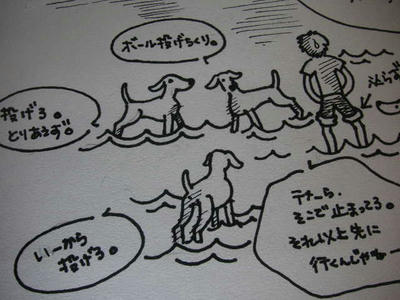 ボール投げちくり。
投げろ。
とりあえず。
いーから
投げろ。
テメーら、
そこで止まってろ。
それ以上先に
行くんじゃねー